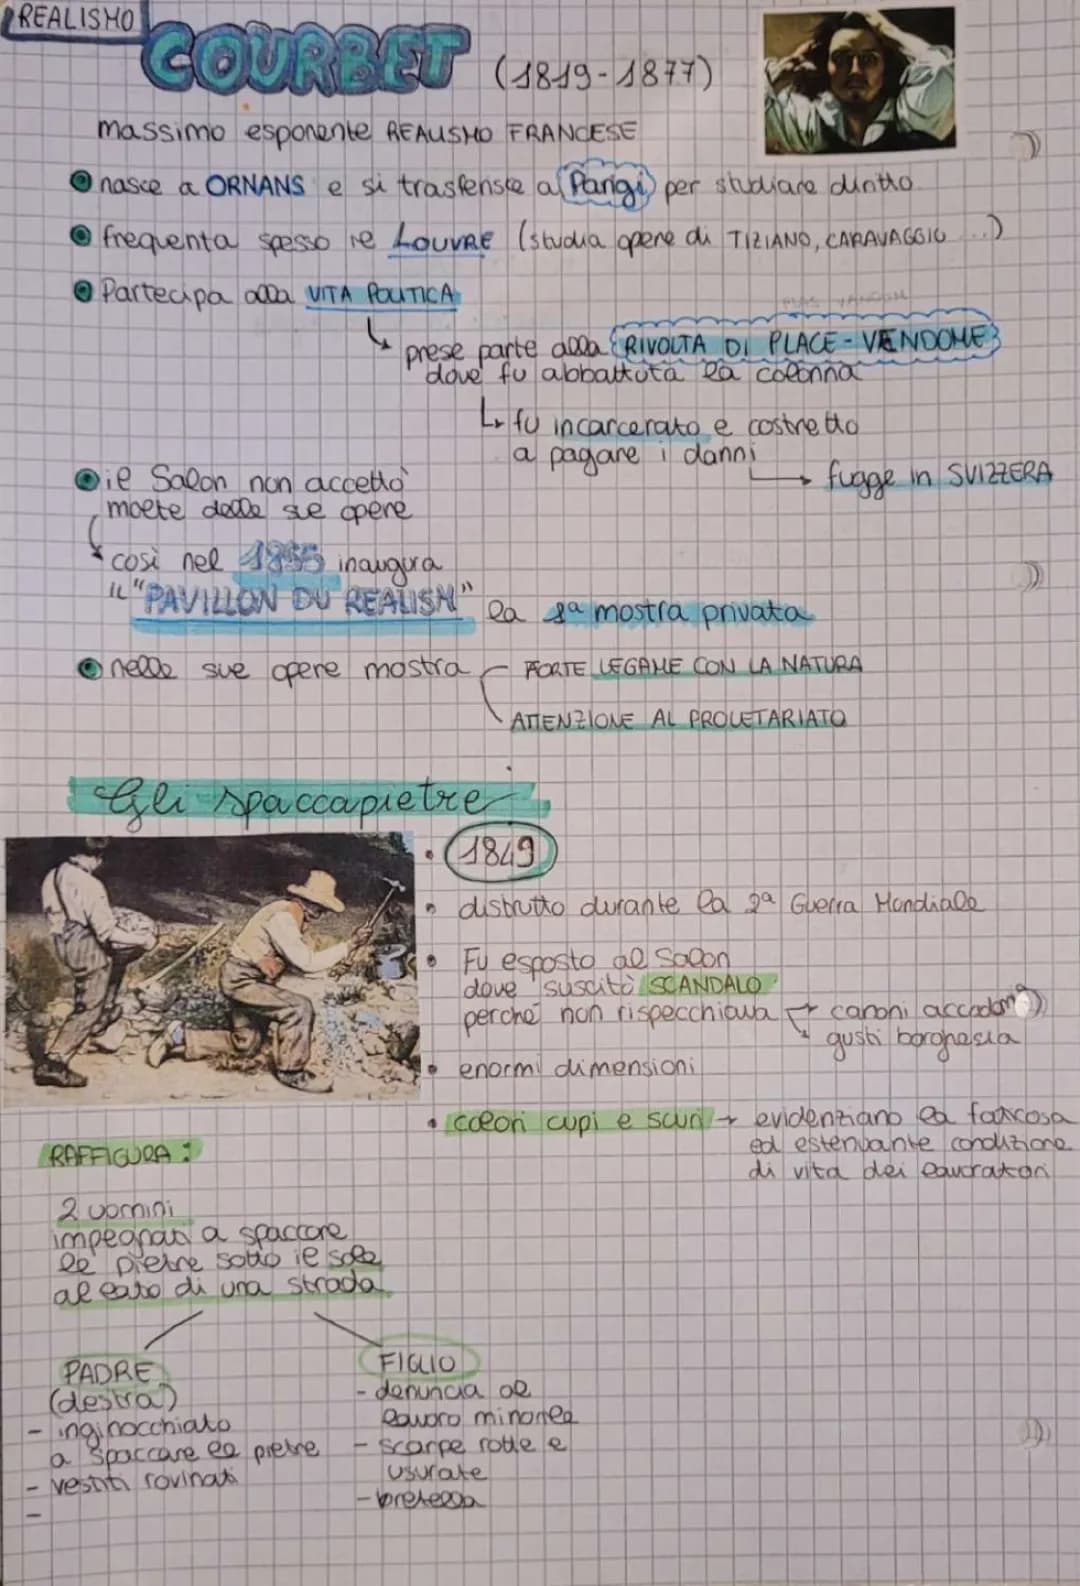 REALISMO
COURBET (1819-1877)
massimo esponente REALISMO FRANCESE
nasce a ORNANS e si trasferisce a Parigi per studiare diritto
frequenta spesso il LOUVRE (studia opere di TIZIANO, CARAVAGGIO ...)
Partecipa alla VITA POLITICA
prese parte alla RIVOLTA DI PLACE-VENDOME
dove fu abbattuta la colonna
fu incarcerato e costretto
a pagare i danni
fugge in SVIZZERA
il Salon non accettò
molte delle sue opere
così nel 1855 inaugura
IL "PAVILLON DU REALISM" la 1ª mostra privata
nelle sue opere mostra
FORTE LEGAME CON LA NATURA
ATTENZIONE AL PROLETARIATO
Gli spaccapietre
1849
distrutto durante la 2ª Guerra Mondiale
Fu esposto al Salon
dove suscitò SCANDALO
perché non rispecchiava
canoni
gusti borghesia
enormi dimensioni
colori cupi e scuri → evidenziano la faticosa
ed estenuante condizione
di vita dei lavoratori
RAFFIGURA:
2 uomini
impegnati a spaccare
le pietre sotto il sole
al lato di una strada
PADRE
(destra)
- inginocchiato
a spaccare le pietre
- vestiti rovinati
-
FIGLIO
- denuncia al
lavoro minorile
- scarpe rotte e
usurate
- bretella